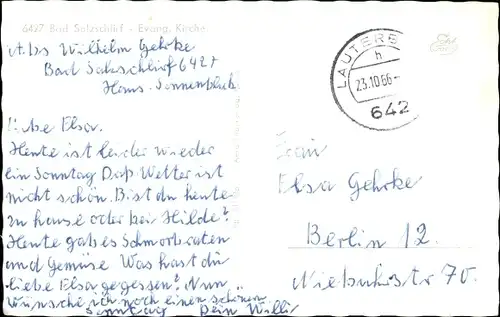 6427 Bad Salzschlirf - Evang. Kirche
Abs Wilhelm Gehrke
Bad Salzschlirf 6427
Haus-Sonnenblick
Liebe Elsa.
Heute ist leider wieder
ein Sonntag Das Wetter ist
nicht schön. Bist du heute
zu hause oder bei Hilde?
Heute gab es Schmorbraten
und Gemüse Was hast du
liebe Elsa gegessen? Nun
wünsche ich noch einen schönen
Sonntag Dein Willi
LAUTERB
h
23.10.66-
642
Frau
Elsa Gehrke
Berlin 12.
Niebuhrstr 70.